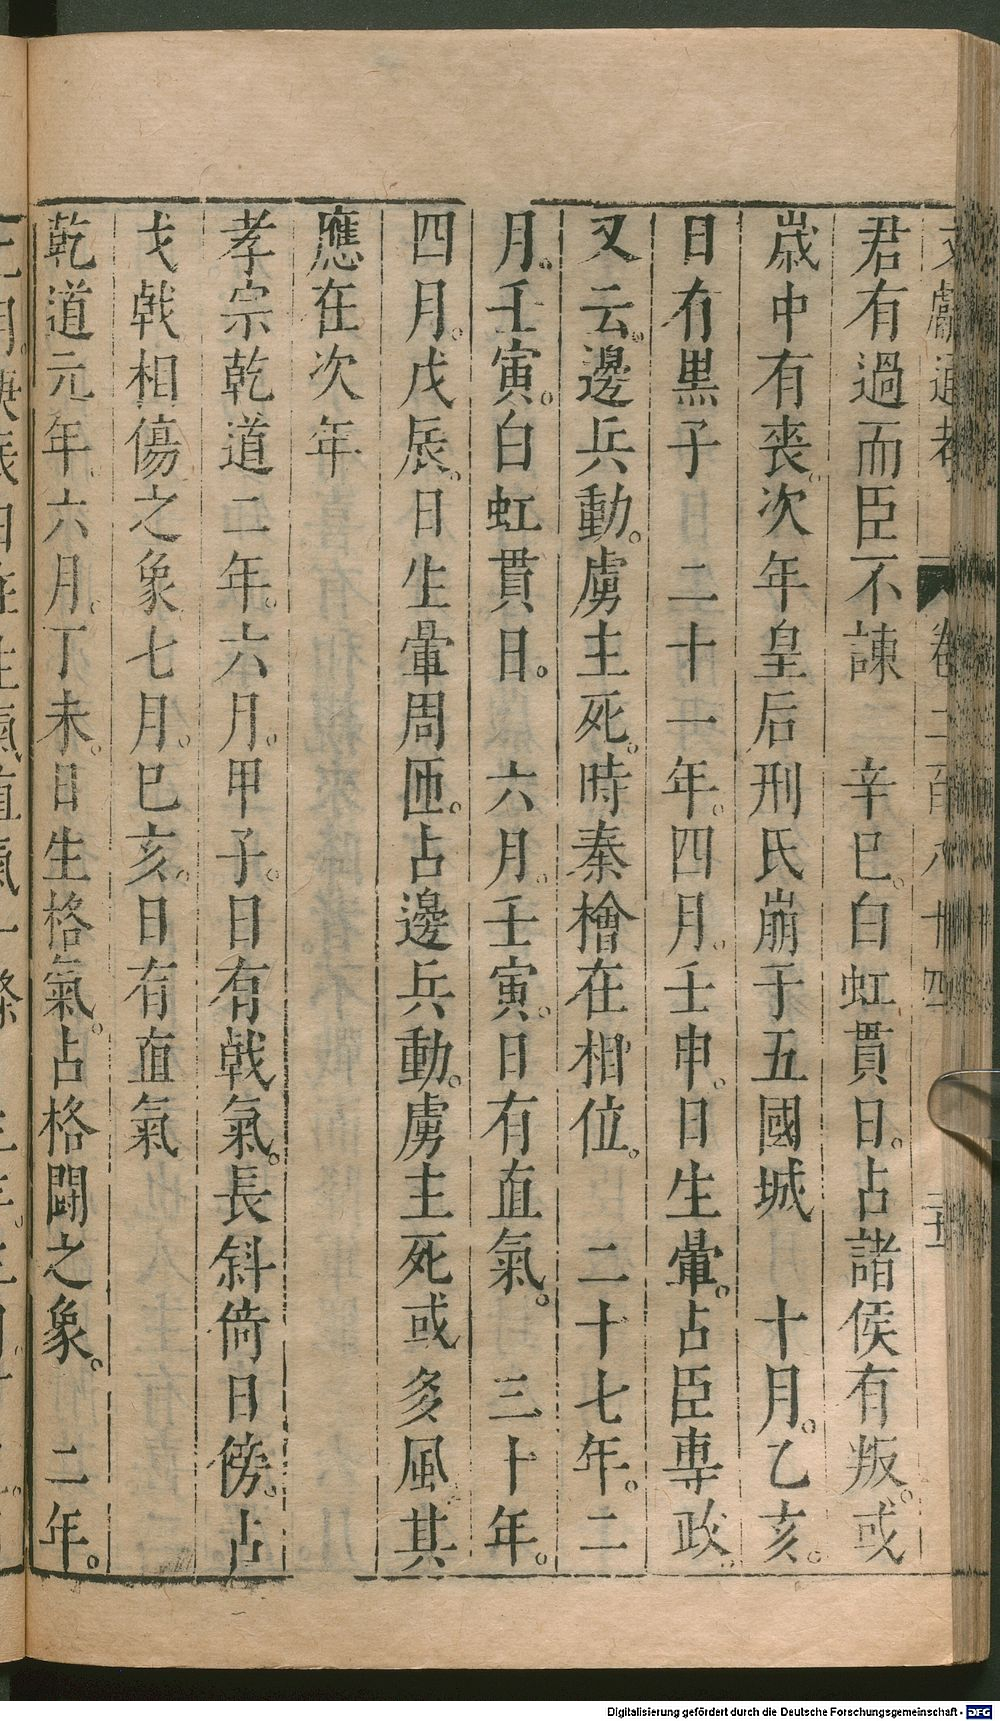 文獻通考 卷二百八十四
君有過而臣不諌　辛巳。白虹貫日。占諸侯有叛。或
嵗中有丧。次年皇后刑氏崩于五國城　十月。乙亥。
日有黒子　二十一年。四月。壬申。日生暈。占臣專政
又云。邊兵動。虜主死。時秦檜在相位。　二十七年。二
月。壬寅。白虹貫日。　六月。壬寅。日有直氣。　三十年。
四月。戊辰。日生暈周匝。占邊兵動。虜主死或多風其
應在次年
孝宗乾道二年。六月。甲子。日有戟氣。長斜倚日傍。占
戈戟相傷之象七月。巳亥。日有直氣
乾道元年。六月。丁未。日生格氣。占格鬪之象。　二年。
Digitalisierung gefördert durch die Deutsche Forschungsgemeinschaft - DFG